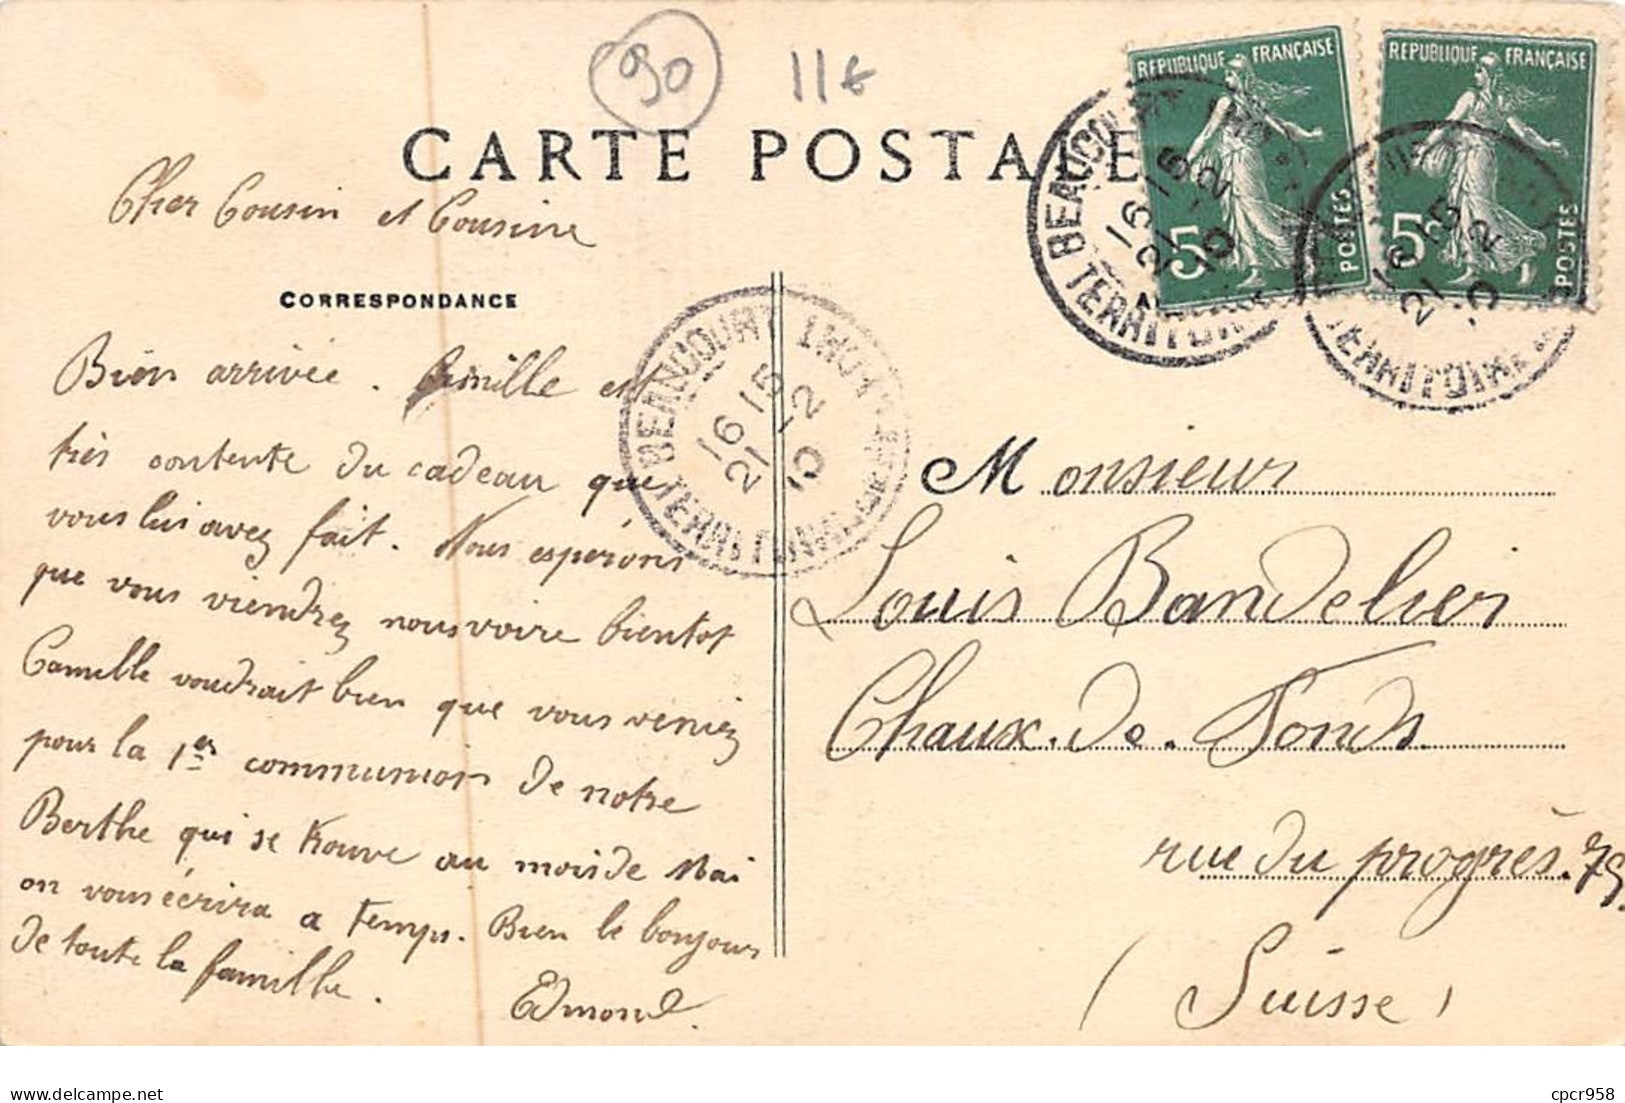 90
11€
CARTE POSTALE
REPUBLIQUE FRANÇAISE
5c
POSTES
REPUBLIQUE FRANÇAISE
5c
POSTES
BEAUCOURT
TERRITOIRE
16 15
21 -2
10
16 15
21 -2
10
TERRITOIRE
BEAUCOURT
16 15
21 -2
10
TERRITOIRE DE
Cher Cousin et Cousine
CORRESPONDANCE
Bien arrivée. Camille est
très contente du cadeau que
vous lui avez fait. Nous esperons
que vous viendrez nous voire bientot
Camille voudrait bien que vous veniez
pour la 1er communion de notre
Berthe qui se trouve au mois de Mai
on vous écrira a temps. Bien le bonjour
de toute la famille.
Edmond.
Monsieur
Louis Bandelier
Chaux-de-Fonds
rue du progrès. 79.
(Suisse)
www.delcampe.net
cpcr958